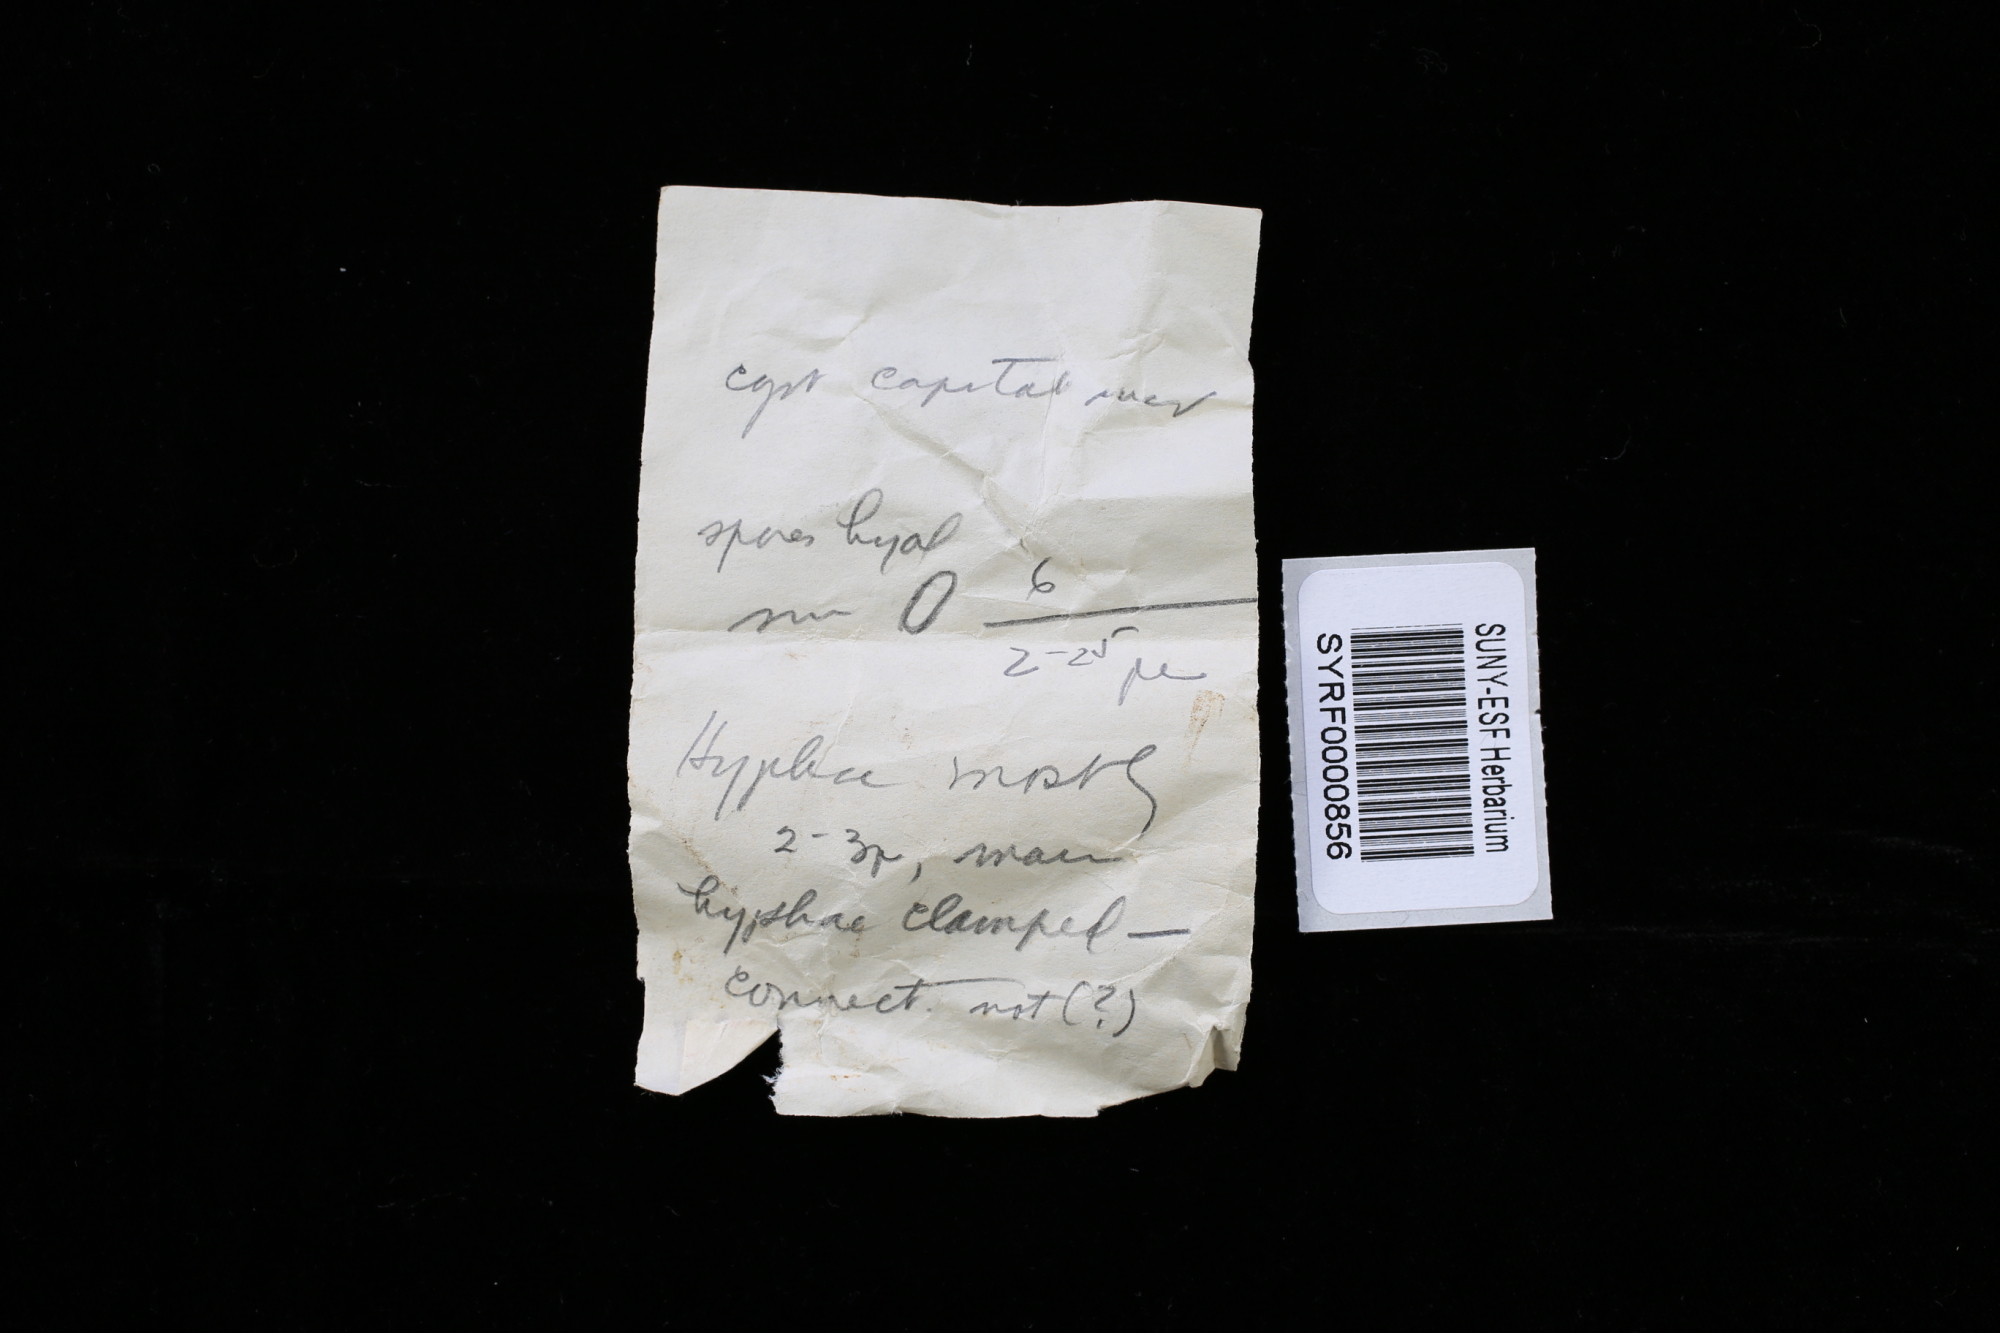 cyst capitat incr
spores hyal
sm 0 6
2-2⁵ µ
Hyphae mostly
2-3µ, main
hyphae clamped —
connect. not (?)
SUNY-ESF Herbarium
SYRF0000856